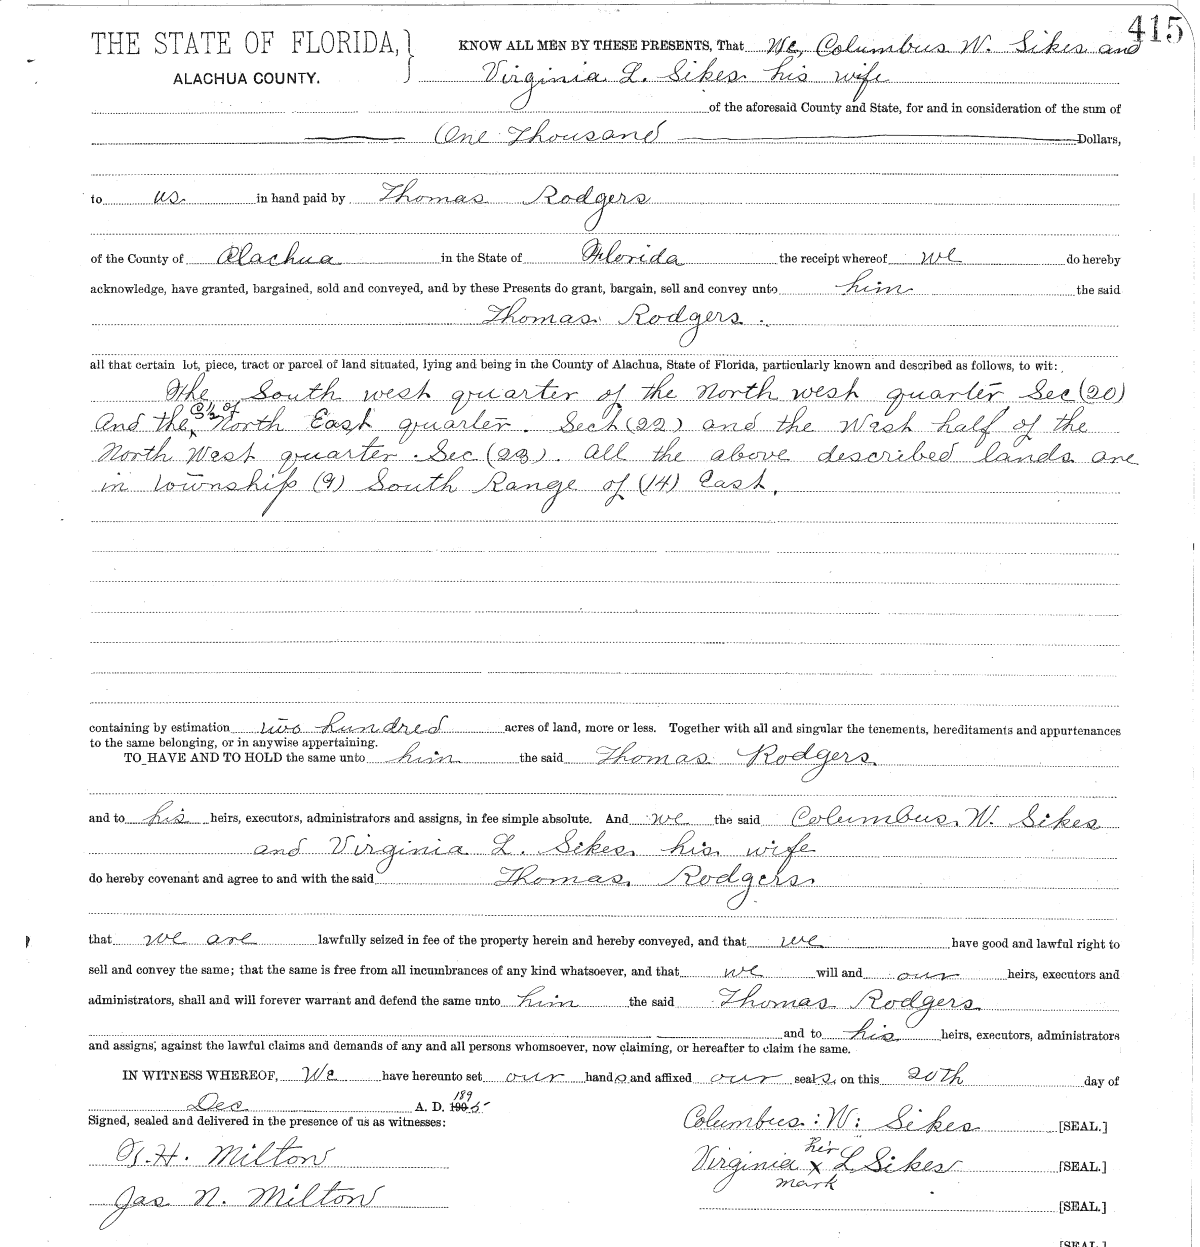 415
THE STATE OF FLORIDA,
ALACHUA COUNTY.
KNOW ALL MEN BY THESE PRESENTS, That We, Columbus W. Sikes and
Virginia L. Sikes his wife
of the aforesaid County and State, for and in consideration of the sum of
One Thousand Dollars,
to us in hand paid by Thomas Rodgers
of the County of Alachua in the State of Florida the receipt whereof we do hereby
acknowledge, have granted, bargained, sold and conveyed, and by these Presents do grant, bargain, sell and convey unto him the said
Thomas Rodgers.
all that certain lot, piece, tract or parcel of land situated, lying and being in the County of Alachua, State of Florida, particularly known and described as follows, to wit:
The South west quarter of the North west quarter Sec (20)
And the North East quarter. Sect (22) and the West half of the
North West quarter. Sec (23). All the above described lands are
in township (9) South Range of (14) East.
containing by estimation two hundred acres of land, more or less. Together with all and singular the tenements, hereditaments and appurtenances
to the same belonging, or in anywise appertaining.
TO HAVE AND TO HOLD the same unto him the said Thomas Rodgers.
and to his heirs, executors, administrators and assigns, in fee simple absolute. And we the said Columbus W. Sikes
and Virginia L. Sikes his wife
do hereby covenant and agree to and with the said Thomas Rodgers
that we are lawfully seized in fee of the property herein and hereby conveyed, and that we have good and lawful right to
sell and convey the same; that the same is free from all incumbrances of any kind whatsoever, and that we will and our heirs, executors and
administrators, shall and will forever warrant and defend the same unto him the said Thomas Rodgers
and to his heirs, executors, administrators
and assigns, against the lawful claims and demands of any and all persons whomsoever, now claiming, or hereafter to claim the same.
IN WITNESS WHEREOF, We have hereunto set our hands and affixed our seals, on this 20th day of
Dec A. D. 1895
Signed, sealed and delivered in the presence of us as witnesses:
Columbus : W : Sikes [SEAL.]
H. Milton
her
Virginia x L Sikes [SEAL.]
mark
Jas N. Milton
[SEAL.]
[SEAL.]